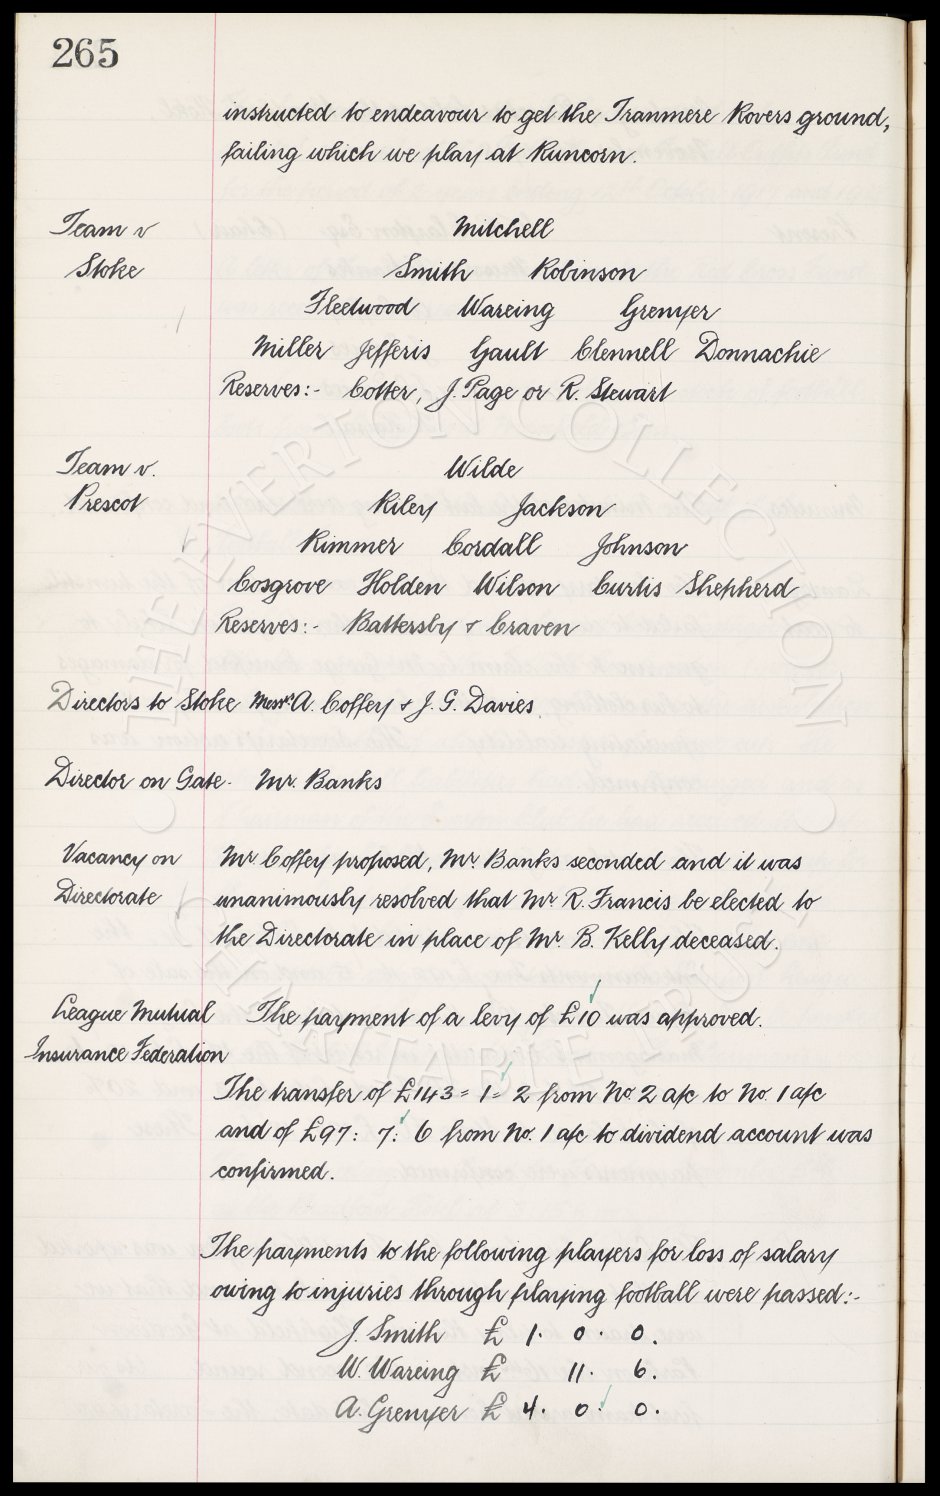 265
instructed to endeavour to get the Tranmere Rovers ground,
failing which we play at Runcorn.
Team v Mitchell
Stoke Smith Robinson
Fleetwood Wareing Grenyer
Miller Jefferis Gault Clennell Donnachie
Reserves:- Cotter, J. Page or R. Stewart
Team v. Wilde
Prescot Riley Jackson
Rimmer Cordall Johnson
Cosgrove Holden Wilson Curtis Shepherd
Reserves:- Battersby & Craven
Directors to Stoke Messrs A. Coffey & J. G. Davies.
Director on Gate. Mr. Banks
Vacancy on Mr Coffey proposed, Mr Banks seconded and it was
Directorate unanimously resolved that Mr R. Francis be elected to
the Directorate in place of Mr. B. Kelly deceased.
League Mutual The payment of a levy of £10 was approved.
Insurance Federation
The transfer of £143 = 1 = 2 from No. 2 a/c to No. 1 a/c
and of £97: 7: 6 from No. 1 a/c to dividend account was
confirmed.
The payments to the following players for loss of salary
owing to injuries through playing football were passed:-
J. Smith £ 1. 0. 0.
W. Wareing £ 11. 6.
A. Grenyer £ 4. 0. 0.
THE EVERTON COLLECTION
CHARITABLE TRUST